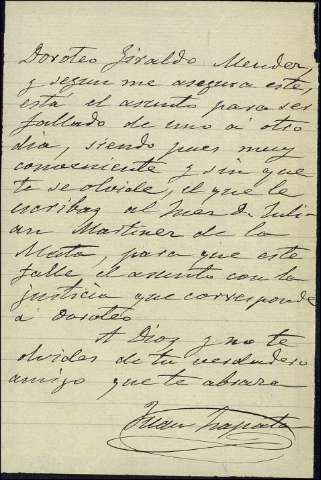 Doroteo Giraldo Mendez,
y segun me asegura este,
esta el asunto para ser
fallado de uno á otro
dia, siendo pues muy
conveniente y sin que
te se olvide, el que le
escribas al Juez D. Juli-
an Martinez de la
Mata, para que este
falle el asunto con la
justicia que corresponde
á Doroteo
A Dios y no te
olvides de tu verdadero
amigo que te abraza
Juan Zapata